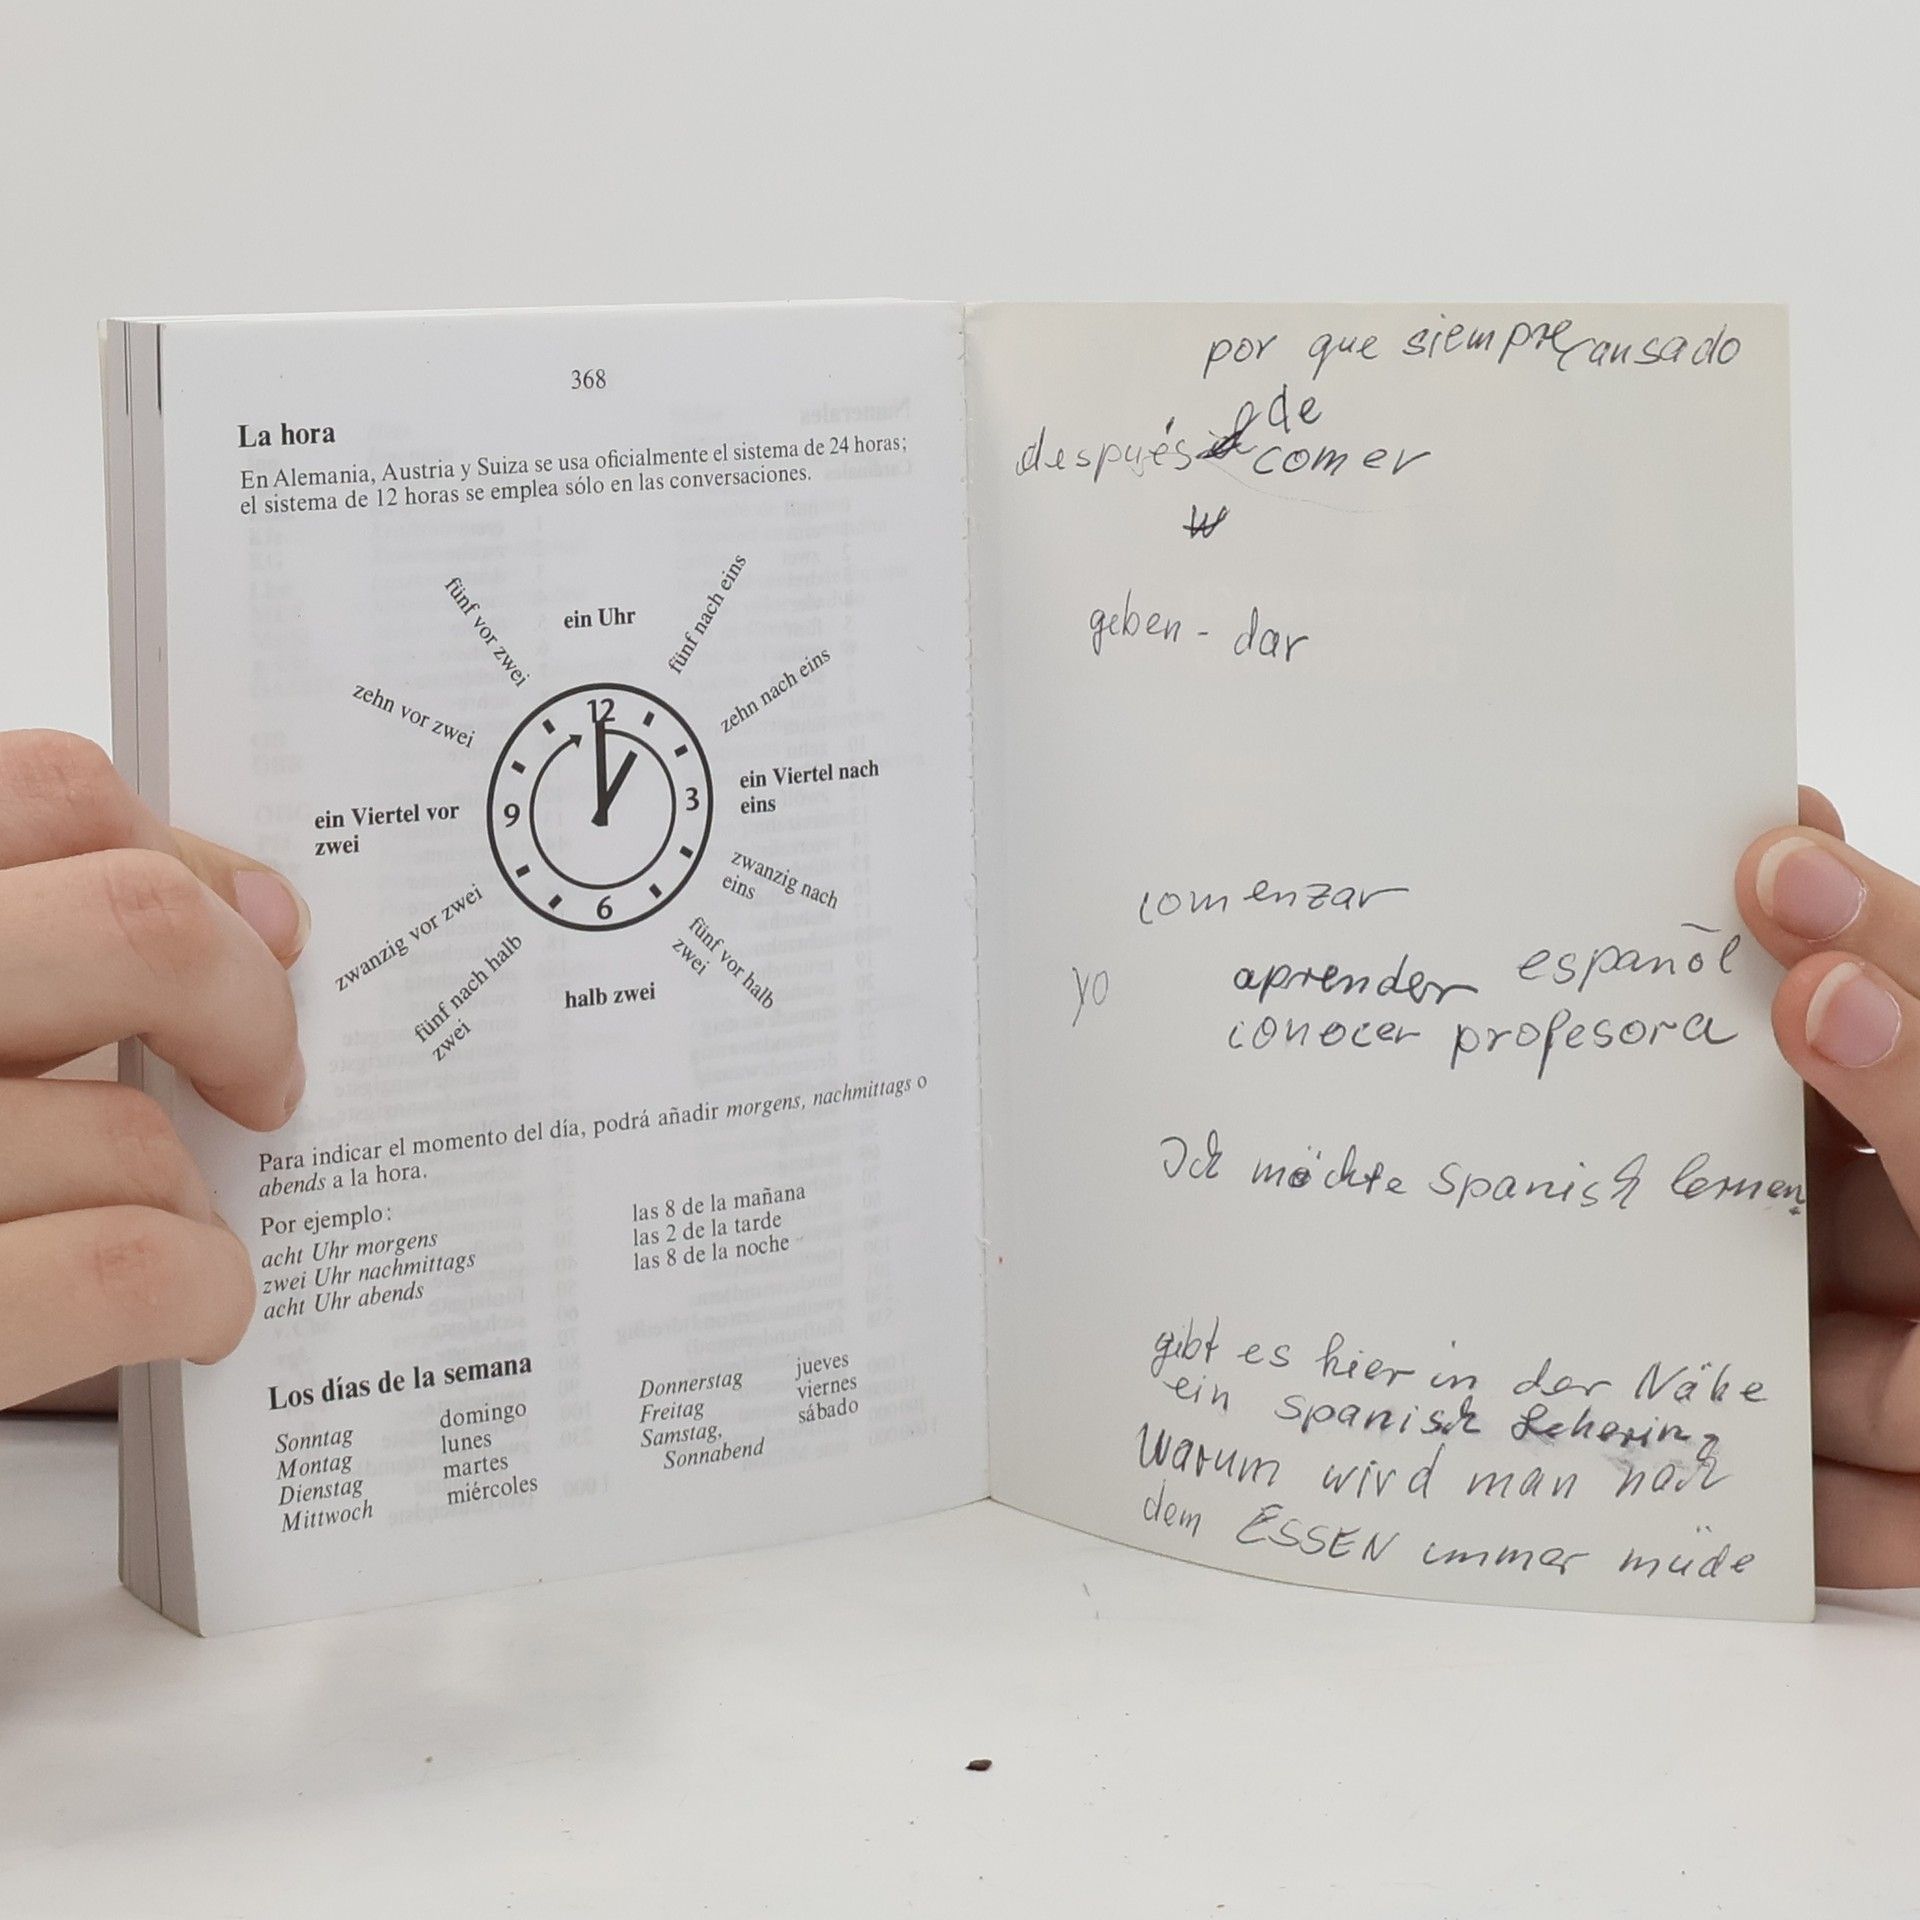 368
La hora
En Alemania, Austria y Suiza se usa oficialmente el sistema de 24 horas;
el sistema de 12 horas se emplea sólo en las conversaciones.
ein Uhr
fünf nach eins
zehn nach eins
ein Viertel nach
eins
zwanzig nach
eins
fünf vor halb
zwei
halb zwei
fünf nach halb
zwei
zwanzig vor zwei
ein Viertel vor
zwei
zehn vor zwei
fünf vor zwei
12
3
6
9
Para indicar el momento del día, podrá añadir morgens, nachmittags o
abends a la hora.
Por ejemplo:
acht Uhr morgens las 8 de la mañana
zwei Uhr nachmittags las 2 de la tarde
acht Uhr abends las 8 de la noche
Los días de la semana
Sonntag domingo
Montag lunes
Dienstag martes
Mittwoch miércoles
Donnerstag jueves
Freitag viernes
Samstag, sábado
Sonnabend
por que siempre cansado
de
después comer
geben - dar
comenzar
yo aprender español
conocer profesora
Ich möchte spanisch lernen
gibt es hier in der Nähe
ein spanisch
Warum wird man nach
dem ESSEN immer müde